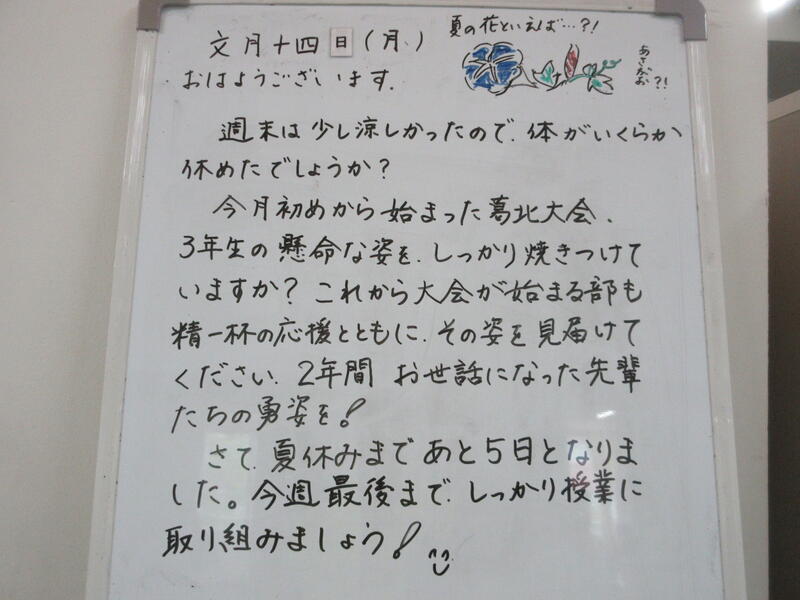 文月十四日(月)
夏の花といえば…?!
あさがお?!
おはようございます.
週末は少し涼しかったので、体がいくらか
休めたでしょうか?
今月初めから始まった葛北大会、
3年生の懸命な姿を、しっかり焼きつけて
いますか? これから大会が始まる部も
精一杯の応援とともに、その姿を見届けて
ください. 2年間 お世話になった先輩
たちの勇姿を!
さて、夏休みまであと5日となりま
した。今週最後まで、しっかり授業に
取り組みましょう!